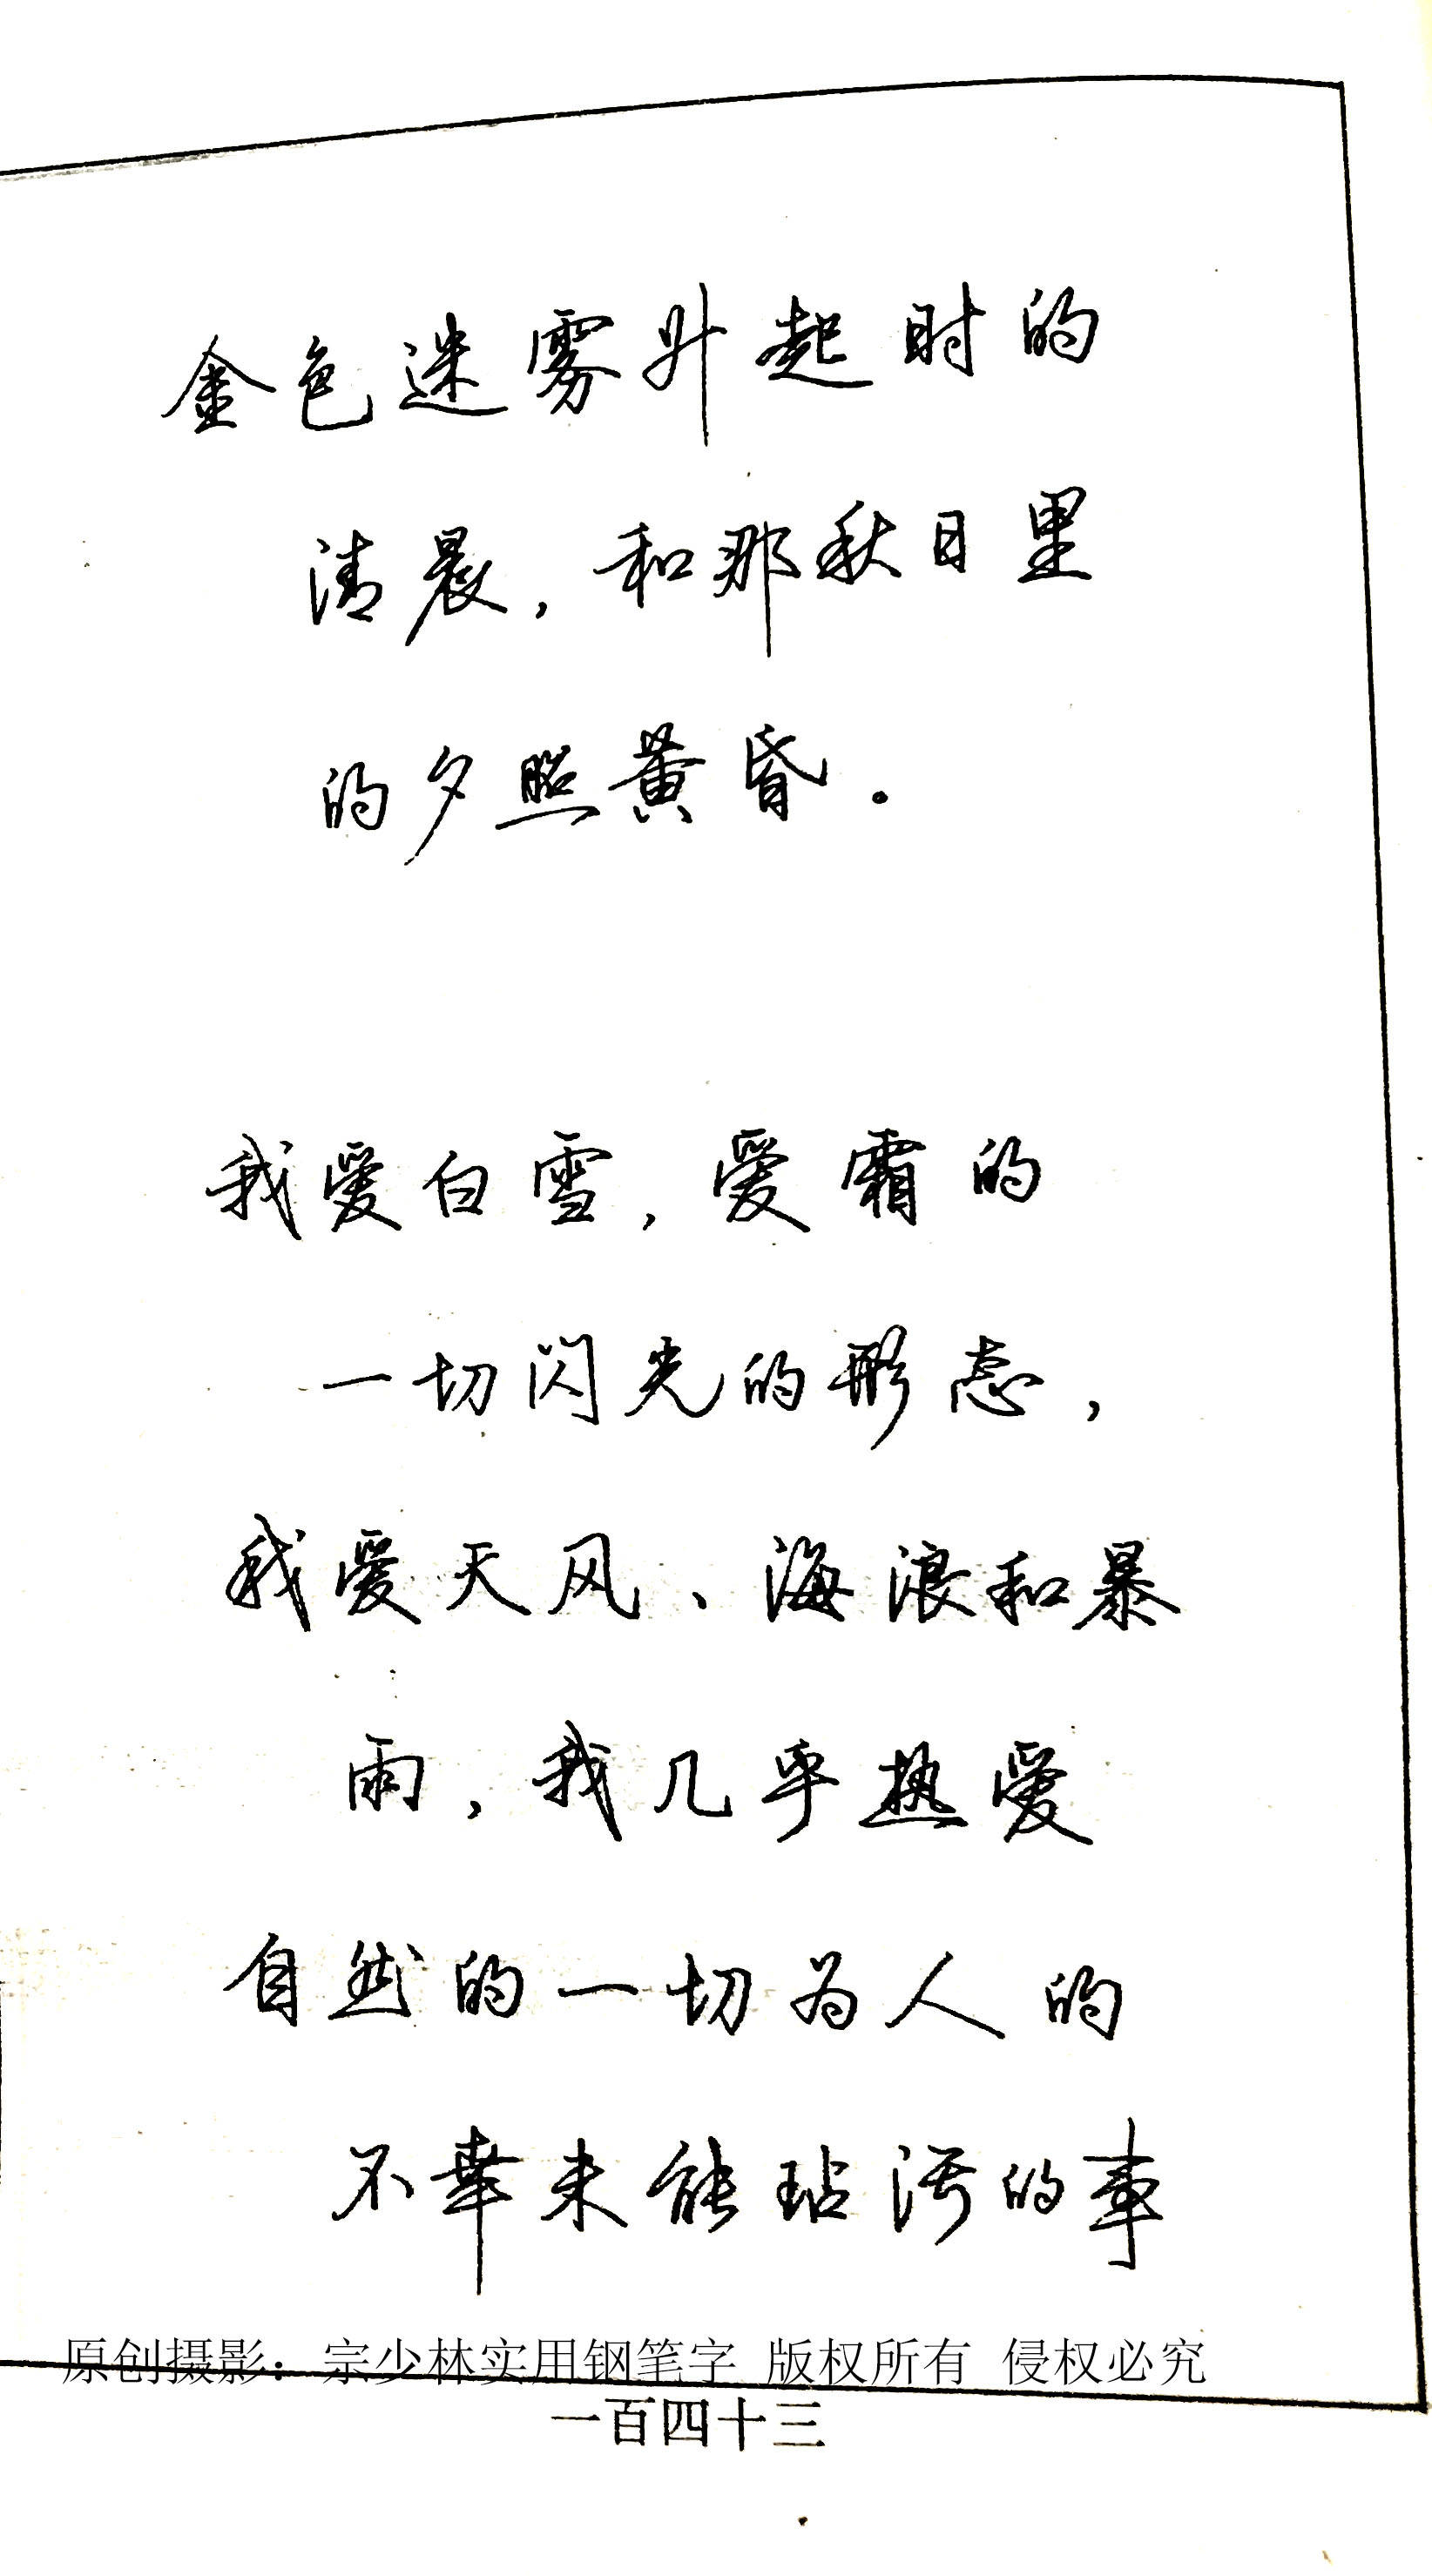 金色迷雾升起时的
清晨，和那秋日里
的夕照黄昏。
我爱白雪，爱霜的
一切闪光的形态，
我爱天风、海浪和暴
雨，我几乎热爱
自然的一切为人的
不幸未能玷污的事
原创摄影：宗少林实用钢笔字 版权所有 侵权必究
一百四十三